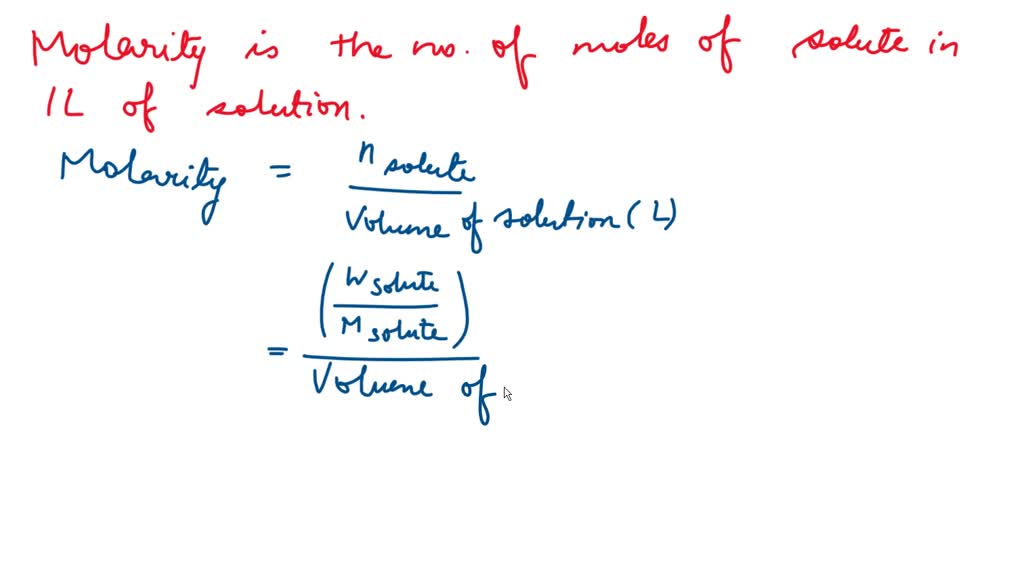 Molarity is the no. of moles of solute in
1L of solution.
Molarity = n solute / Volume of solution (L)
= (W solute / M solute) / Volume of